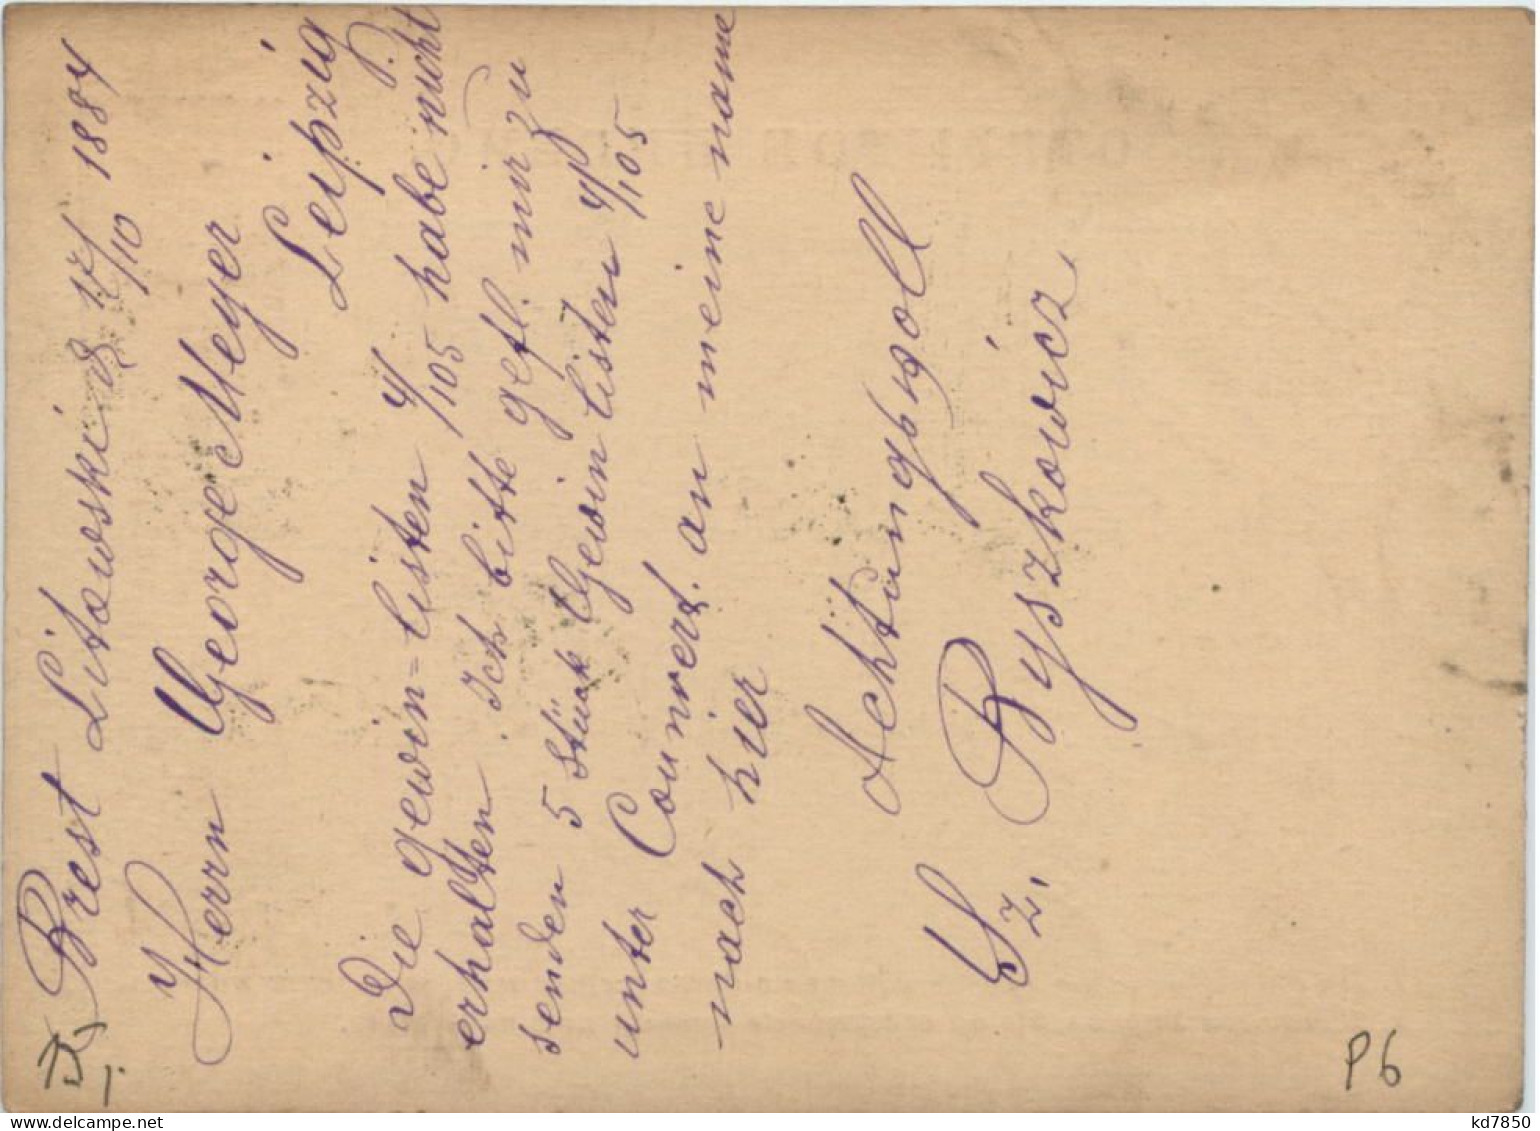 Brest Litowski d 17/10 1884
Herrn George Meyer
Leipzig
Die gewin=Listen 4/105 habe nicht
erhalten . Ich bitte gefl. mir zu
senden 5 Stück Gewin Listen 4/105
unter Couvert. an meine name
nach hier
Achtungsvoll
Sz. Byszkowicz
P6
delcampe.net
kd7850